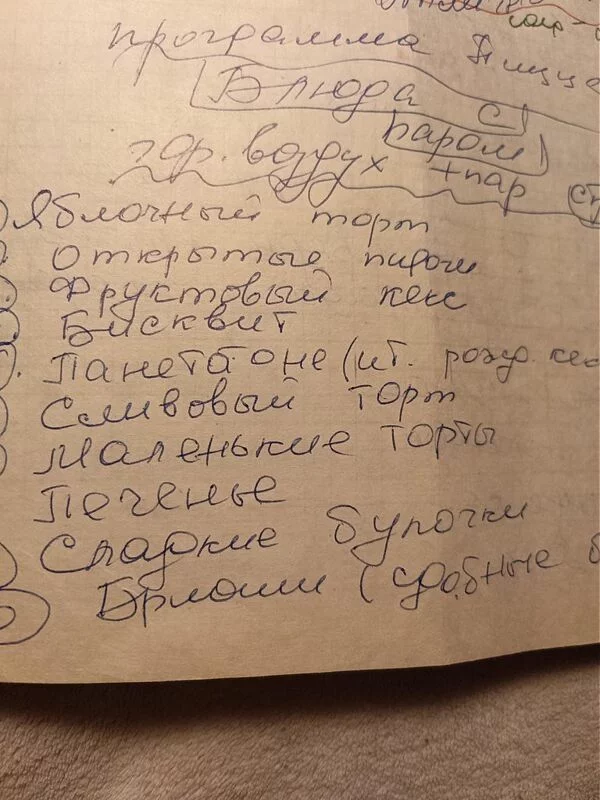 программа Пицца
Блюда с
паром
гор. воздух +пар
Яблочный торт
Открытые пироги
Фруктовый кекс
Бисквит
Панетаоне (ит. рожд. кек
Сливовый торт
Маленькие торты
Печенье
Сладкие булочки
(сдобные б